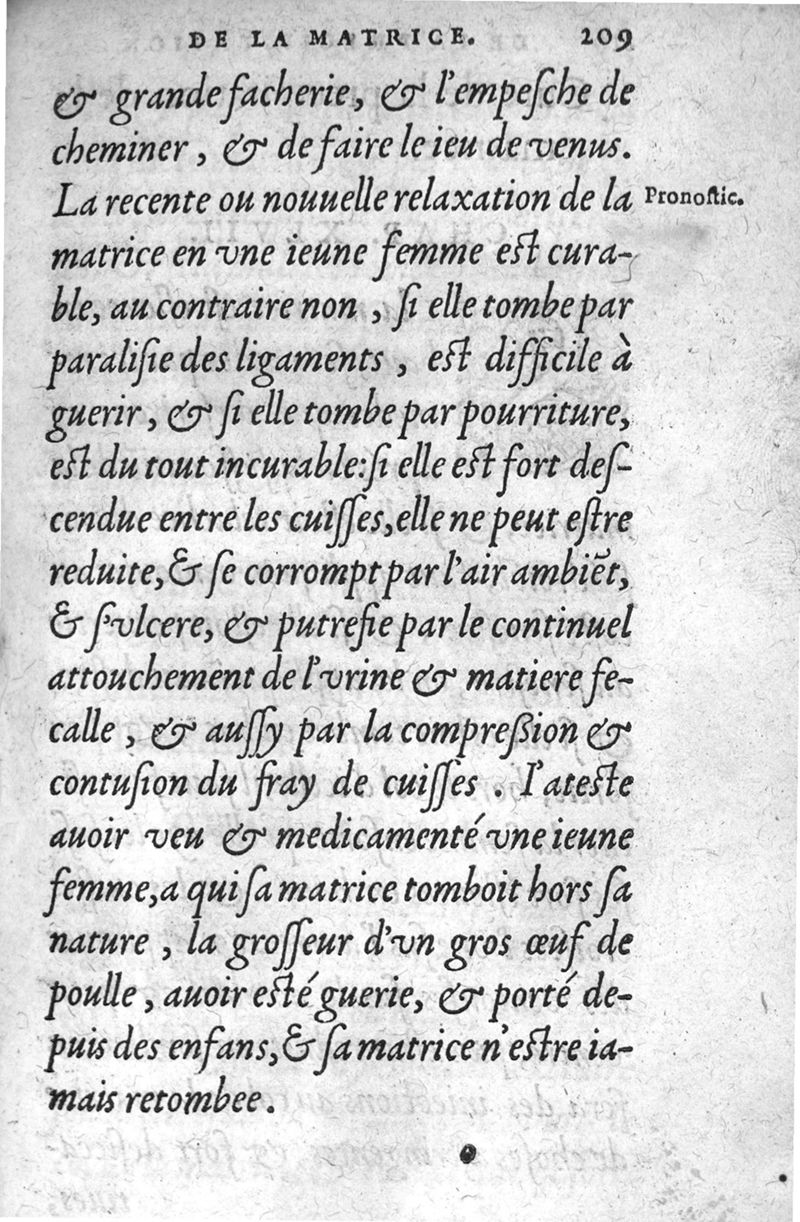 DE LA MATRICE. 209
& grande facherie, & l'empeſche de
cheminer, & de faire le ieu de venus.
La recente ou nouuelle relaxation de la Pronoſtic.
matrice en vne ieune femme eſt cura-
ble, au contraire non, ſi elle tombe par
paraliſie des ligaments, eſt difficile à
guerir, & ſi elle tombe par pourriture,
eſt du tout incurable: ſi elle eſt fort deſ-
cendue entre les cuiſſes, elle ne peut eſtre
reduite, & ſe corrompt par l'air ambiẽt,
& ſ'vlcere, & putrefie par le continuel
attouchement de l'vrine & matiere fe-
calle, & auſſy par la compreßion &
contuſion du fray de cuiſſes. I'ateſte
auoir veu & medicamenté vne ieune
femme, a qui ſa matrice tomboit hors ſa
nature, la groſſeur d'vn gros œuf de
poulle, auoir eſté guerie, & porté de-
puis des enfans, & ſa matrice n'eſtre ia-
mais retombee.